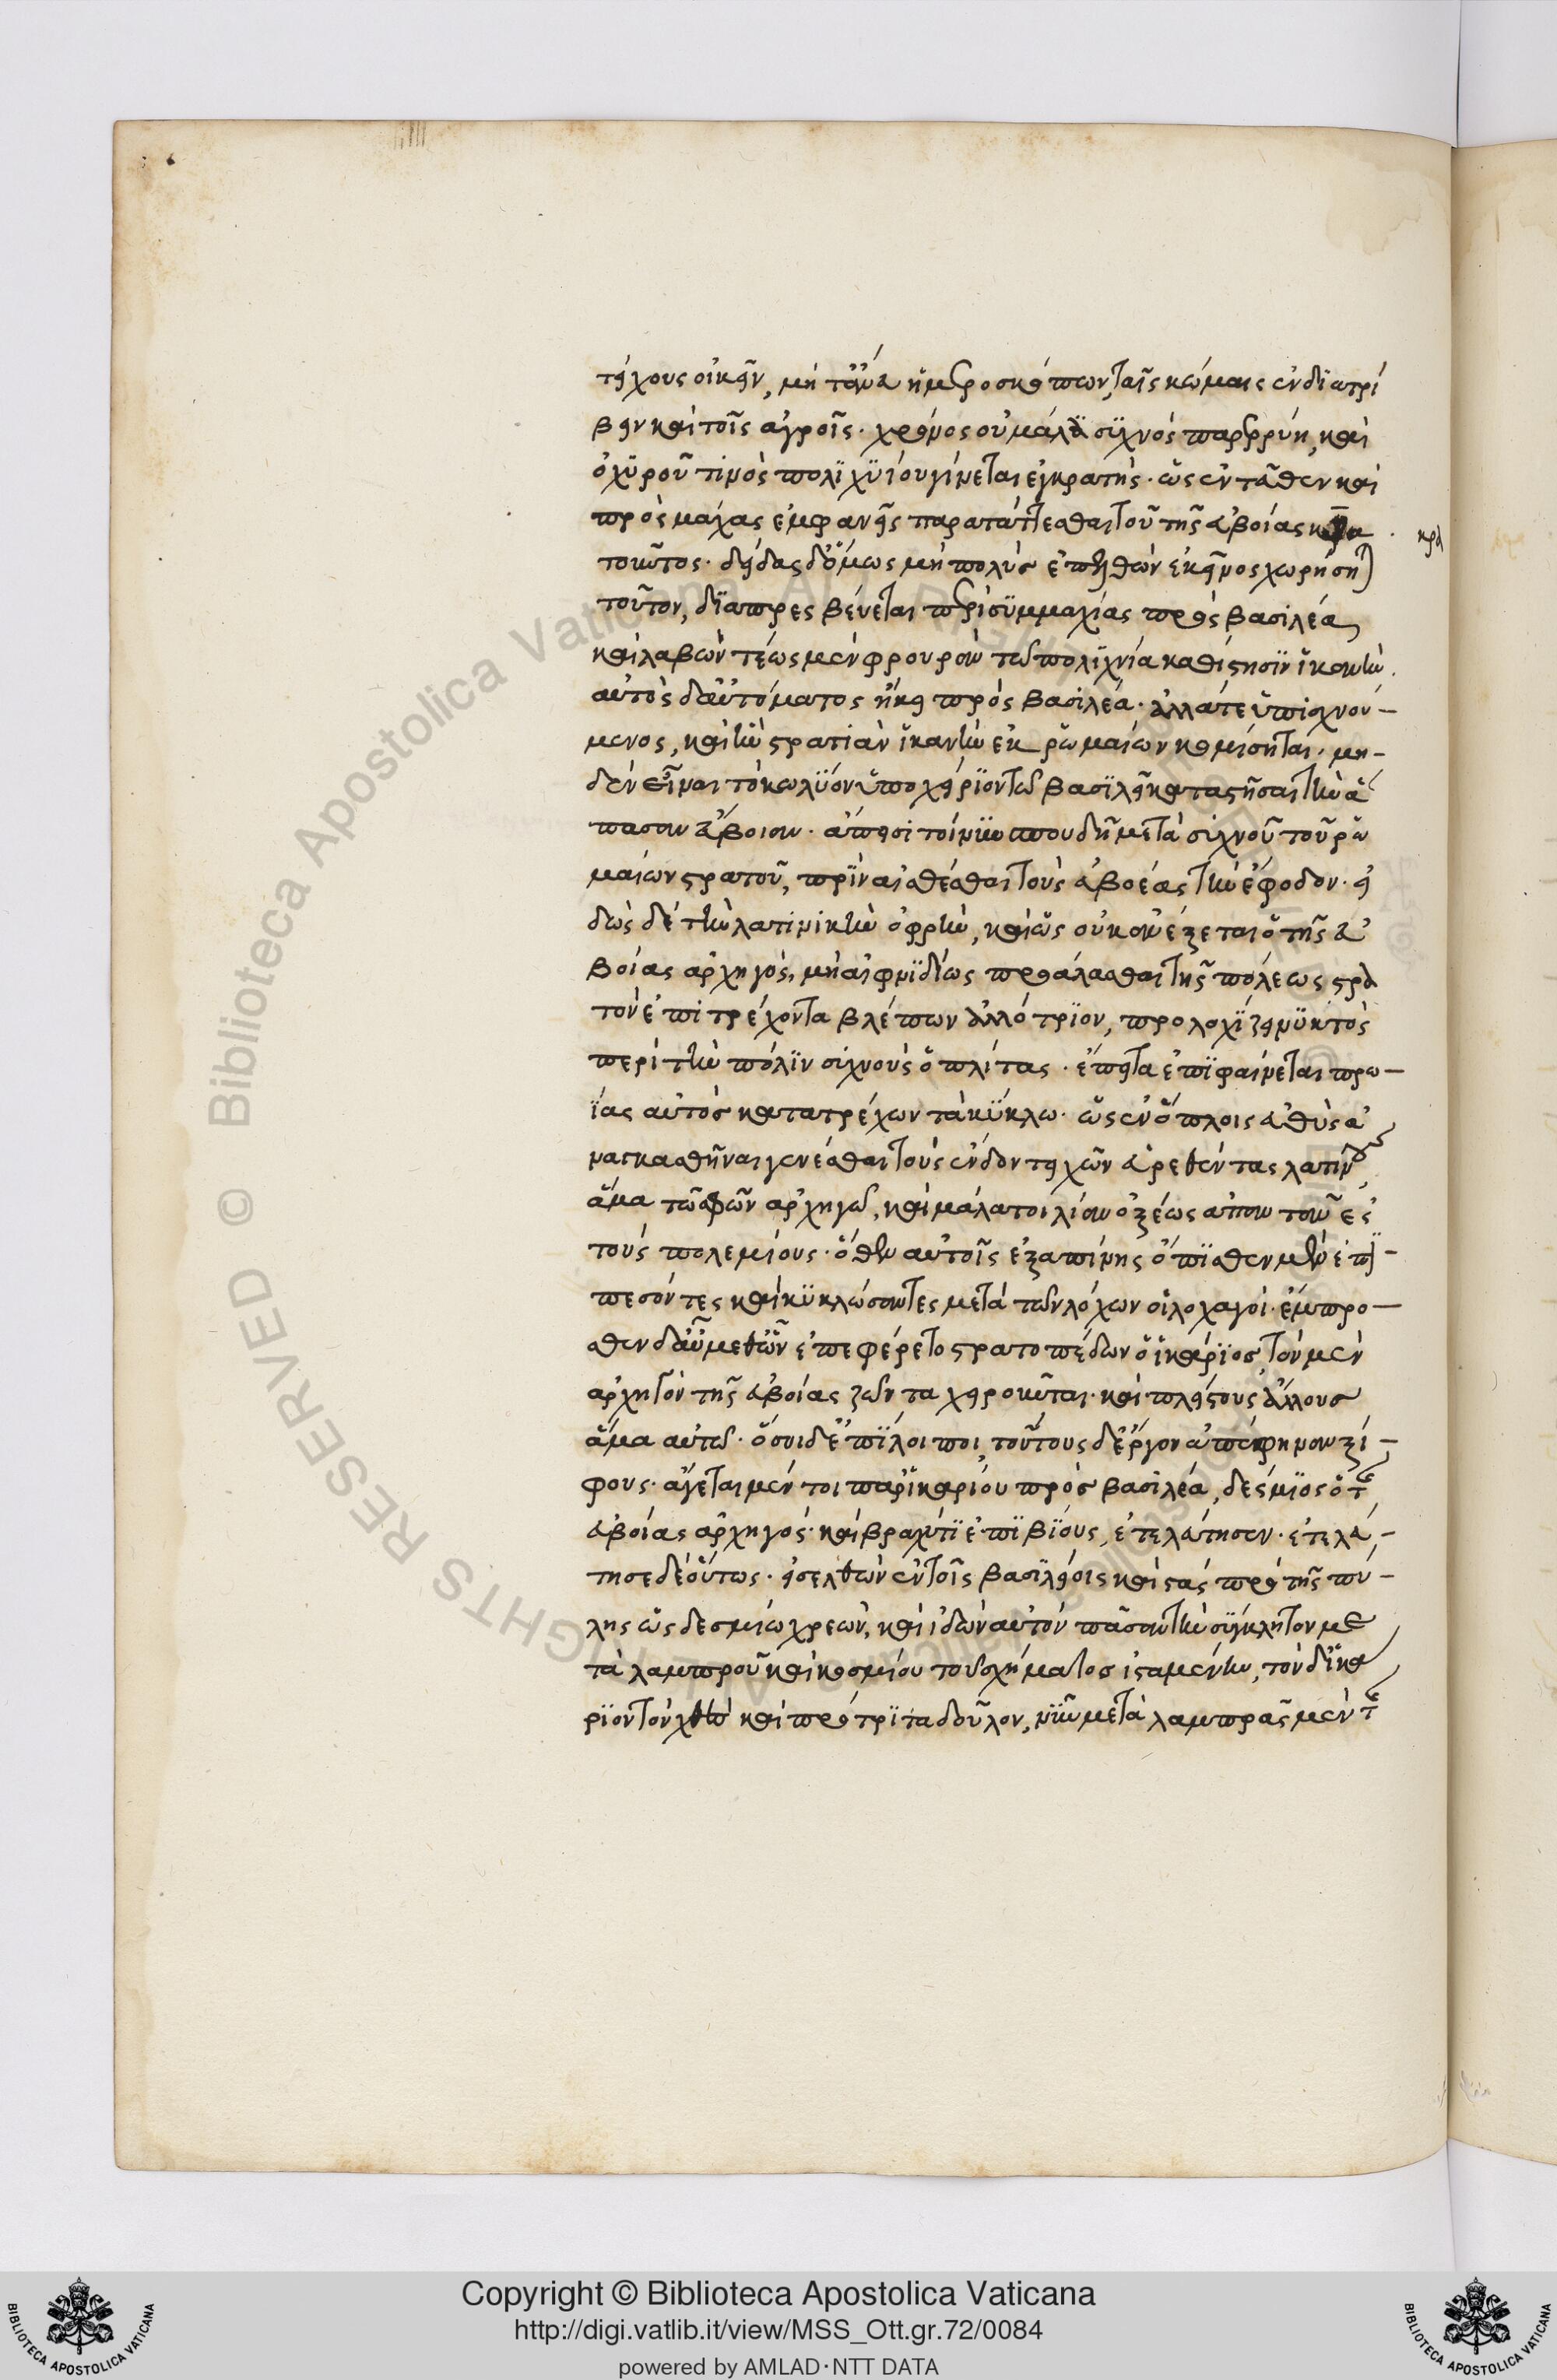 τείχους οἰκεῖν, μὴ τἄνευ ἡμεροσκόπων, ταῖς κώμαις ἐνδϊατρί
βειν καὶ τοῖς ἀγροῖς· χρόνος οὐ μάλα σϋχνὸς παρερρύη, καὶ
ὀχϋροῦ τινὸς πολϊχνίου γίνεται ἐγκρατής· ὡς ἐντεῦθεν καὶ
πρὸς μάχας ἐμφανεῖς παρατάττεσθαι τοῦ τῆς εὐβοίας κρα
κρα
τοῦντος· δείδας δ' ὅμως μὴ πολὺς ἐπελθὼν ἐκεῖνος χωρήσῃ
τοῦτον, δϊαπρεσβεύεται περὶ σϋμμαχίας πρὸς βασιλέα,
καὶ λαβὼν τέως μὲν φρουρὰν τῶ πολϊχνίω καθίστησϊν ἱκανὴν.
αὐτὸς δ' αὐτόματος ἥκει πρὸς βασιλέα· ἀλλά τε ὑπισχνού-
μενος, καὶ ἢν στρατιὰν ἱκανὴν ἐκ ῥωμαίων κομίσηται, μη-
δὲν εἶναι τὸ κωλϋον ὑποχείρϊον τῶ βασϊλεῖ καταστῆσαι τὴν ἅ
πασαν εὔβοιαν· ἄπεισι τοίνϋν σπουδῆ μετὰ σϋχνοῦ τοῦ ῥω
μαίων στρατοῦ, πρϊν αἰσθέσθαι τοὺς εὐβοέας τὴν ἔφοδον· εἰ
δὼς δὲ τὴν λατινικὴν ὀφρὺν, καὶ ὡς οὐκ ἀνέξεται ὁ τῆς εὐ
βοίας ἀρχηγὸς, μὴ αἰφνϊδίως προσάλασθαι τῆς πόλεως στρα
τὸν ἐπιτρέχοντα βλέπων ἀλλότρϊον, προλοχϊζει νϋκτὸς
περὶ τὴν πόλϊν σϋχνοὺς ὁπλίτας· ἔπειτα ἐπϊφαίνεται πρω-
ΐας αὐτὸς κατατρέχων τὰ κϋκλω· ὡς ἐν ὅπλοις εὐθὺς ἀ
νασκασθῆναι γενέσθαι τοὺς ἔνδον τειχῶν εὑρεθέντας λατίνους,
ἅμα τῶ σφῶν ἀρχηγῶ, καὶ μάλα τοι λίαν ὀξέως ἀπαντᾶν ἐς
τοὺς πολεμίους· ὅθεν αὐτοῖς ἐξαπίνης ὄπϊσθεν μὲν ἐπι-
πεσόντες καὶ κϋκλώσαντες μετὰ τῶν λόχων οἱ λοχαγοὶ· ἔμπρο-
σθεν δ' αὖ μεθ' ὧν ἐπεφέρετο στρατοπέδων ὁ ἰκάρϊος τὸν μὲν
ἀρχηγὸν τῆς εὐβοίας ζῶντα χειροῦνται· καὶ πλείστους ἄλλους
ἅμα αὐτῶ· ὅσοι δ' ἐπϊλοιποι, τούτους δ' ἔργον ἀπέφηναν ξί-
φους· ἄγεται μέν τοι παρ' ἰκαρίου πρὸς βασιλέα, δέσμϊος ὁ τῆς
εὐβοίας ἀρχηγός· καὶ βραχύ τϊ ἐπϊβϊοὺς, ἐτελεύτησεν· ἐτελεύ-
τησε δὲ οὕτως· εἰσελθὼν ἐν τοῖς βασϊλείοις καὶ στὰς πρὸ τῆς πύ-
λης ὡς δεσμίω χρεὼν, καὶ ἰδὼν αὐτόν πᾶσαν τὴν σϋγκλητον με
τὰ λαμπροῦ καὶ κοσμίου τοῦ σχήματος ἱσταμένην, τὸν δ' ἰκά
ρϊον τὸν χθὲς καὶ πρότρϊτα δοῦλον, νϋν μετὰ λαμπρᾶς μὲν τῆς